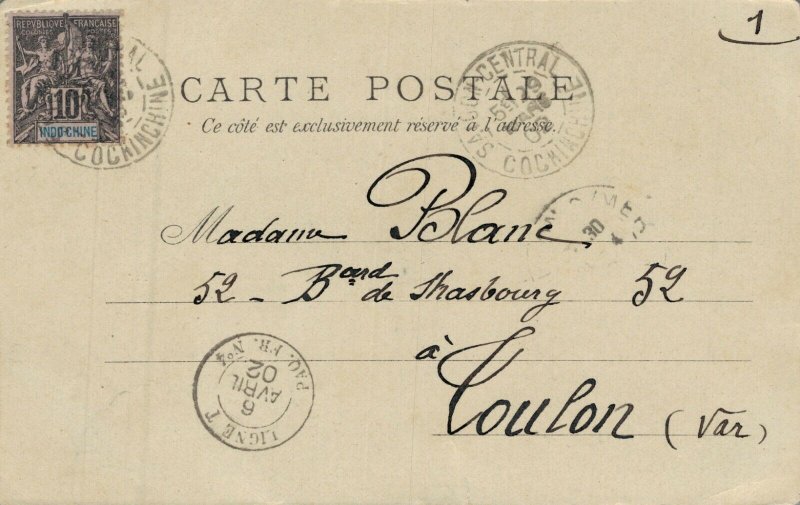 1
REPVBLIQVE FRANÇAISE
COLONIES POSTES
10
INDO-CHINE
COCHINCHINE
SAIGON-CENTRAL
COCHINCHINE
CARTE POSTALE
Ce côté est exclusivement réservé à l'adresse.
30
4
Madame Blanc
52 - Bard de Strasbourg 52
à
Toulon (Var)
LIGNE T
PAQ. FR. N°4
6
AVRIL
02